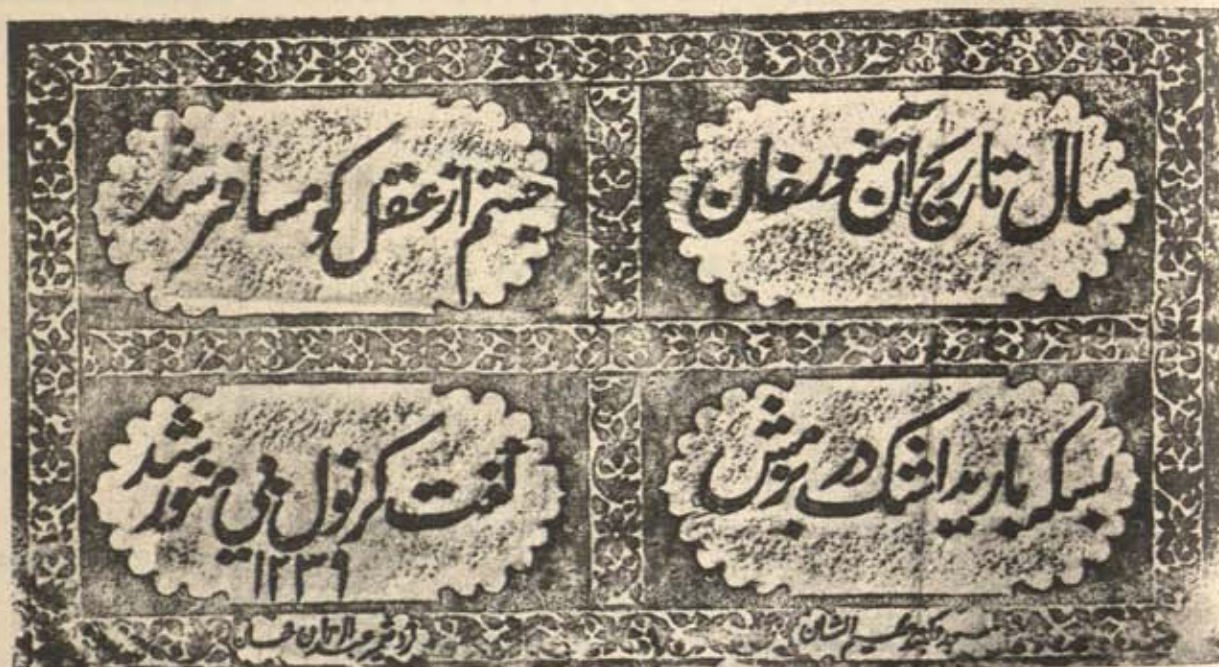 سال تاریخ آن منور خان
جستم از عقل کو مسافر شد
بسکه بارید اشک در بزمش
گفت کرنول بی منور شد
۱۲۳۹
الشان